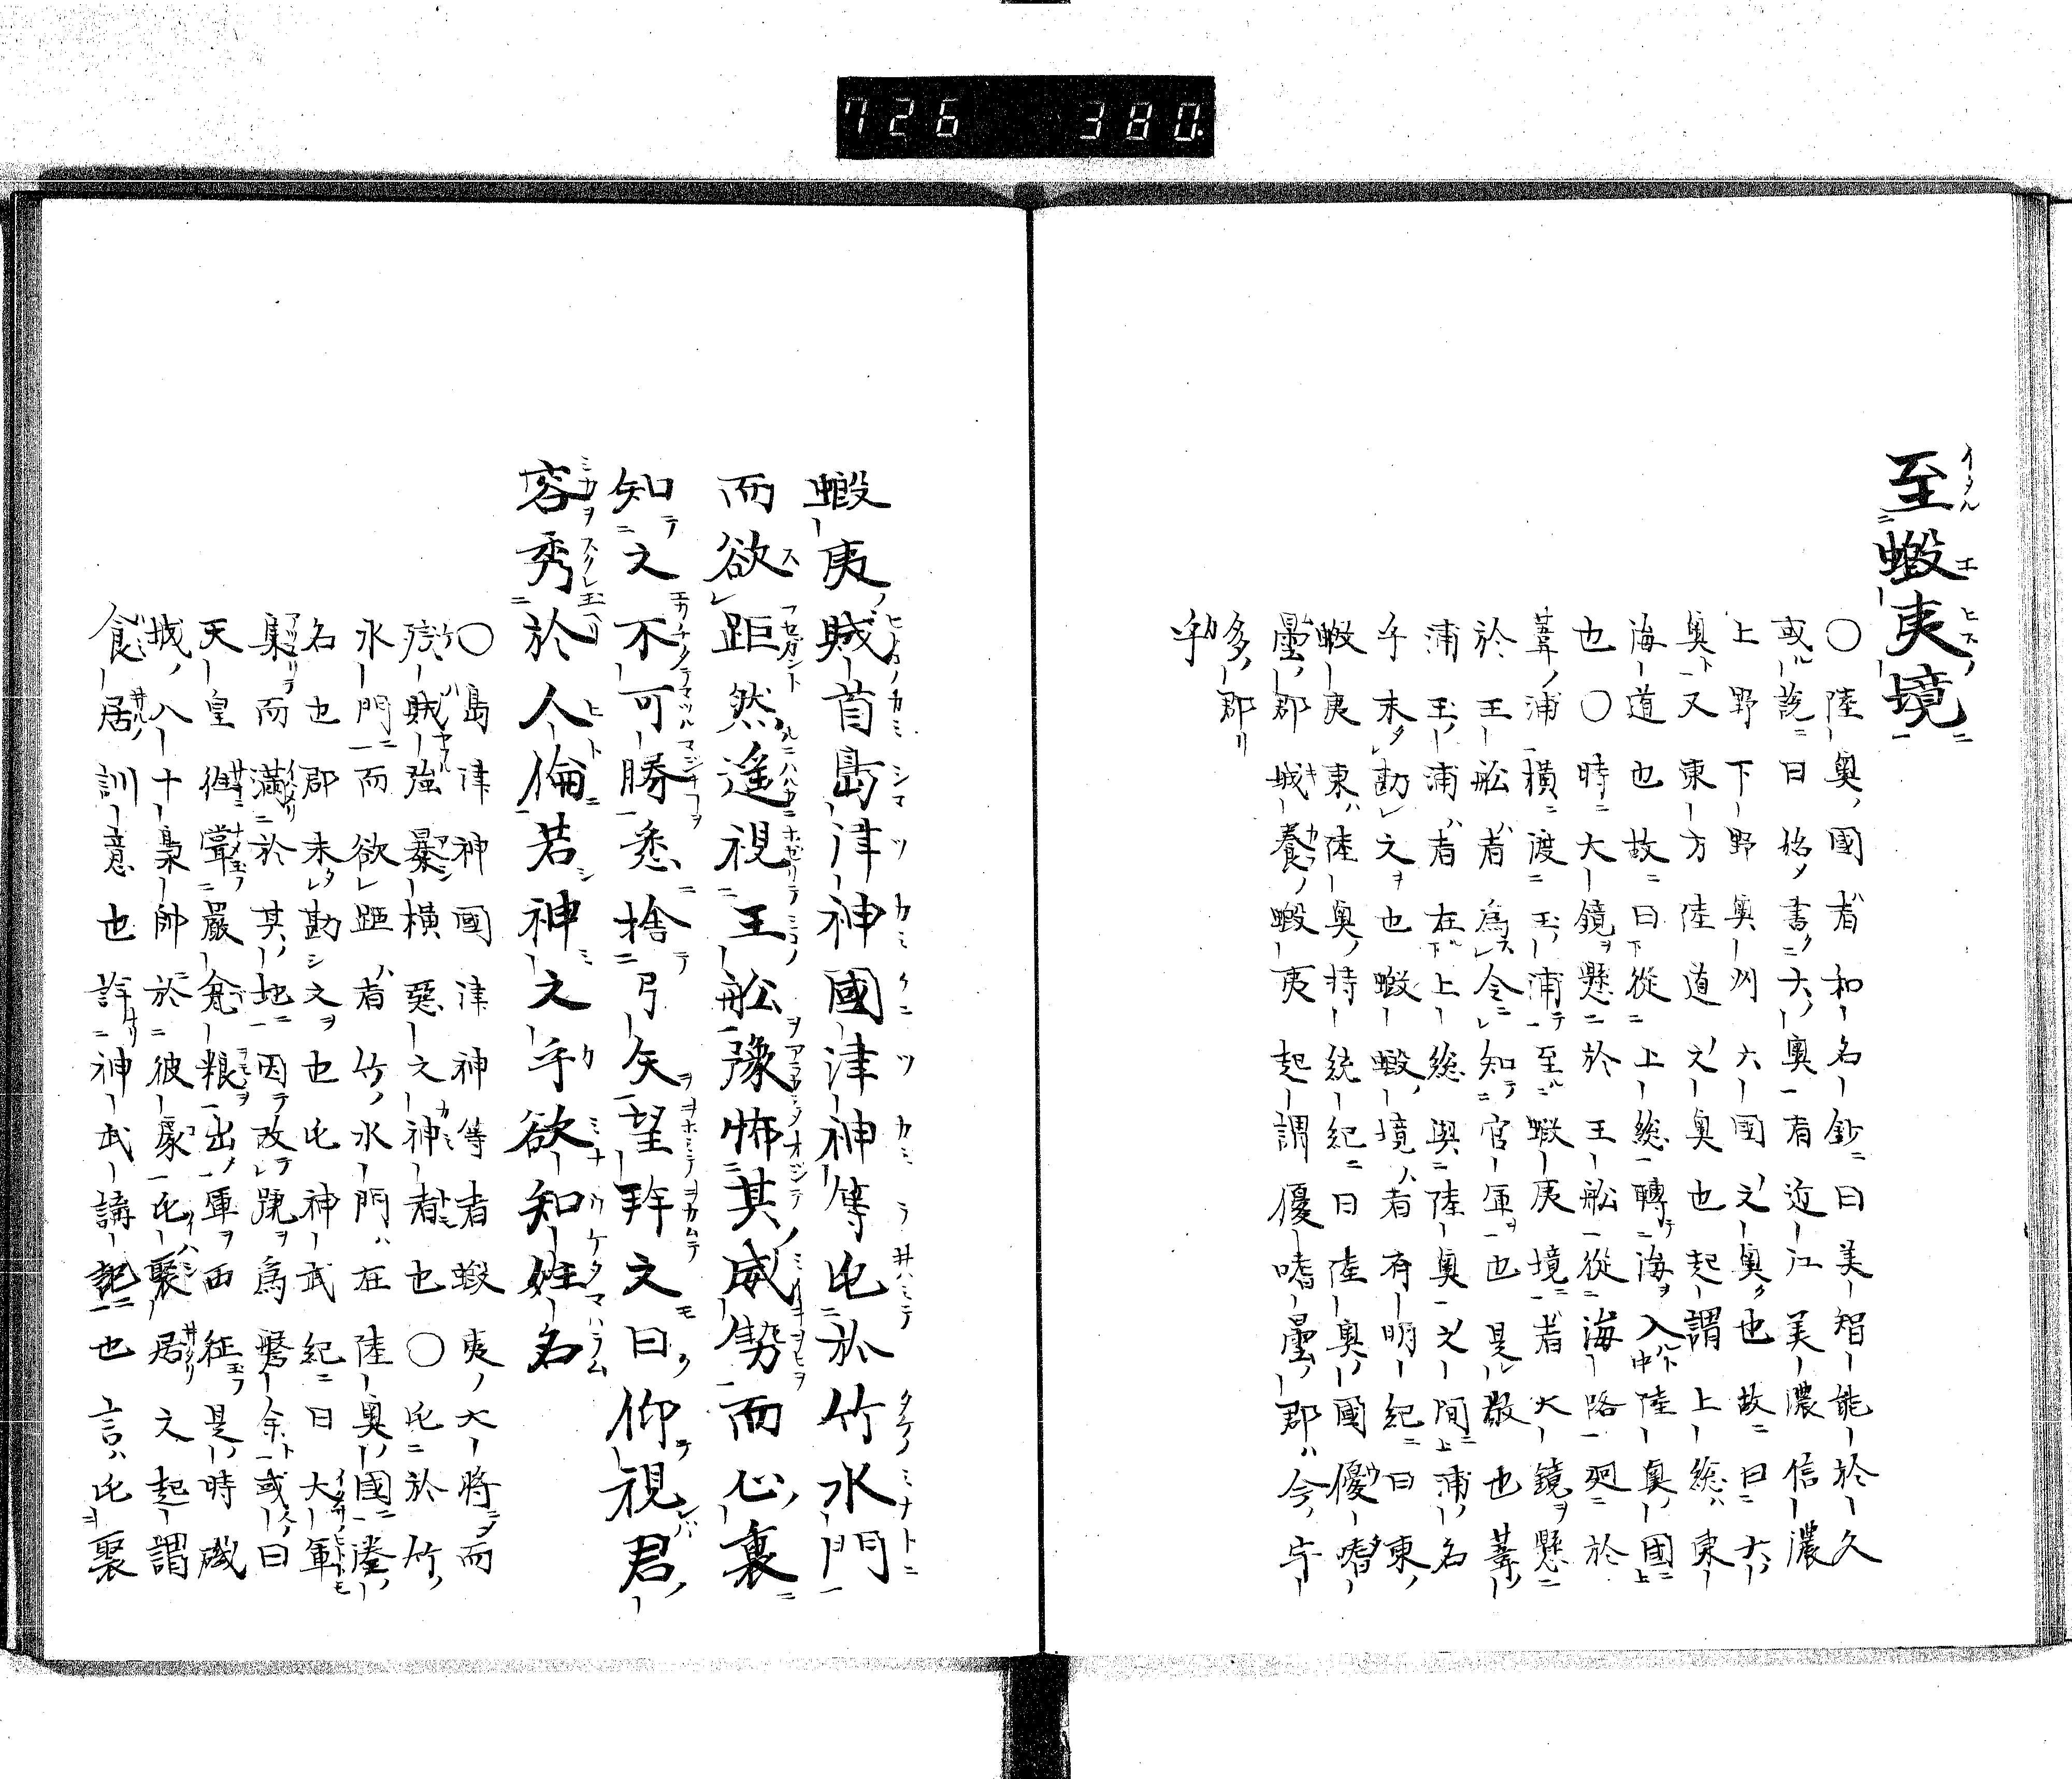 726 380
至蝦夷境
〇陸奥國者和名鈔曰美智能於久
或説曰始書大奥有近江美濃信濃
上野下野奥州六國之奥也故曰大
奥又東方陸道之奥也起謂上総東
海道也故曰從上総轉海入陸奥國
也〇時大鏡懸於王舩從海路廻於
葦浦横渡玉浦至蝦夷境者大鏡懸
於王舩者為令知官軍也是敬也葦
浦玉浦者在上総與陸奥之間浦名
乎未勘文也蝦夷境者有明紀曰東
蝦夷東陸奥持統紀曰陸奥國優𡺸曇郡城養蝦夷起謂優𡺸曇郡今宇
多郡
乎
蝦夷賊首島津神國津神等屯於竹水門
而欲距然遥視王舩豫怖其威勢而心裏
知之不可勝悉捨弓矢望拜之曰仰視君
容秀於人倫若神之乎欲知姓名
〇島津神國津神等者蝦夷大將而
賊強暴横惡之神者也〇屯於竹
水門而欲距者竹水門在陸奥國湊
名也郡未勘文也屯神武紀曰大軍
集而満於其地因改號為磐余或曰
天皇徃嘗嚴瓮粮出軍西征是時磯
城八十梟帥於彼屯聚居之起謂
食居訓意也詳神武講記也言屯聚